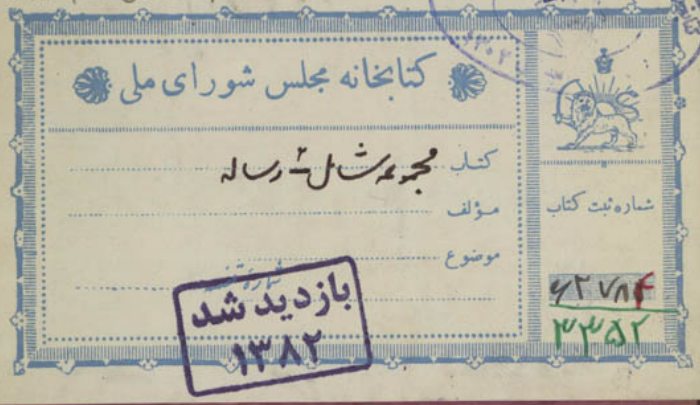 کتابخانه مجلس شورای ملی
کتاب مجموعه شامل ۳ رساله
مؤلف
موضوع
شماره ثبت کتاب
۶۲۷۸۴
۳۳۵۲
بازدید شد
۱۳۸۲
۱۳۰۲